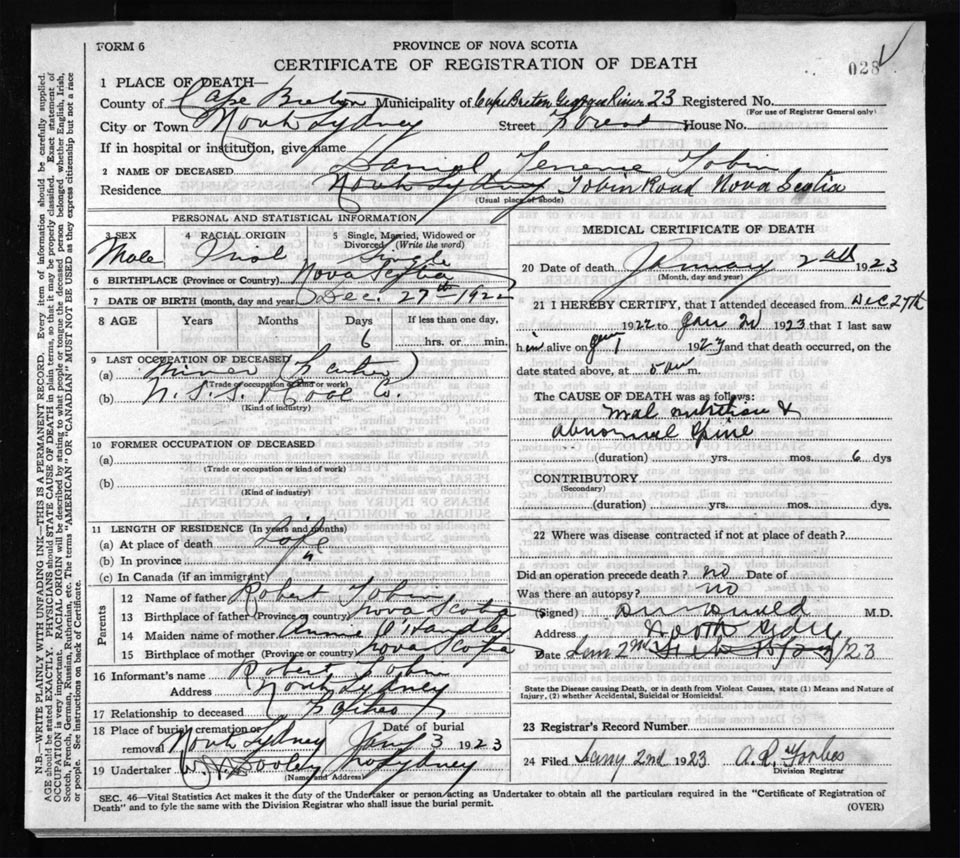 FORM 6
PROVINCE OF NOVA SCOTIA
CERTIFICATE OF REGISTRATION OF DEATH
028
1 PLACE OF DEATH—
County of Cape Breton Municipality of Cape Breton Georges River 23 Registered No.
(For use of Registrar General only)
City or Town North Sydney Street House No.
If in hospital or institution, give name
2 NAME OF DECEASED Daniel Terence Tobin
Residence North Sydney Tobin Road Nova Scotia
(Usual place of abode)
PERSONAL AND STATISTICAL INFORMATION
3 SEX 4 RACIAL ORIGIN 5 Single, Married, Widowed or Divorced (Write the word)
Male Irish Single
6 BIRTHPLACE (Province or Country) Nova Scotia
7 DATE OF BIRTH (month, day and year) Dec. 27th 1922
8 AGE Years Months Days If less than one day,
6 hrs. or min.
9 LAST OCCUPATION OF DECEASED
(a) Miner (Father)
(Trade or occupation or kind of work)
(b) N.S.S. & Coal Co.
(Kind of industry)
10 FORMER OCCUPATION OF DECEASED
(a)
(Trade or occupation or kind of work)
(b)
(Kind of industry)
11 LENGTH OF RESIDENCE (In years and months)
(a) At place of death Life
(b) In province "
(c) In Canada (if an immigrant)
Parents
12 Name of father Robert Tobin
13 Birthplace of father (Province or country) Nova Scotia
14 Maiden name of mother Annie O'Handley
15 Birthplace of mother (Province or country) Nova Scotia
16 Informant's name Robert Tobin
Address North Sydney
17 Relationship to deceased Father
18 Place of burial, cremation or removal North Sydney Date of burial Jany 3 1923
19 Undertaker W. Dooley No Sydney
(Name and Address)
MEDICAL CERTIFICATE OF DEATH
20 Date of death January 2nd 1923
(Month, day and year)
21 I HEREBY CERTIFY, that I attended deceased from Dec 27th
1922 to Jan 2d 1923 that I last saw
him alive on Jan 1 1923 and that death occurred, on
date stated above, at m.
The CAUSE OF DEATH was as follows:
Mal nutrition &
abnormal spine
(duration) yrs. mos. 6 dys
CONTRIBUTORY
(Secondary)
(duration) yrs. mos. dys.
22 Where was disease contracted if not at place of death?
Did an operation precede death? no Date of
Was there an autopsy? no
(Signed) M.D.
Address North Sydney
Date Jan 2nd /23
State the Disease causing Death, or in death from Violent Causes, state (1) Means and Nature of Injury, (2) whether Accidental, Suicidal or Homicidal.
23 Registrar's Record Number
24 Filed Jany 2nd 1923 A. R. Forbes
Division Registrar
SEC. 46—Vital Statistics Act makes it the duty of the Undertaker or person acting as Undertaker to obtain all the particulars required in the "Certificate of Registration of
Death" and to fyle the same with the Division Registrar who shall issue the burial permit.
(OVER)
N.B.—WRITE PLAINLY WITH UNFADING INK—THIS IS A PERMANENT RECORD. Every item of information should be carefully supplied.
AGE should be stated EXACTLY. PHYSICIANS should STATE CAUSE OF DEATH in plain terms, so that it may be properly classified. Exact statement of
OCCUPATION is very important. RACIAL ORIGIN will be described by stating to what people or tongue the deceased person belonged whether English, Irish,
Scotch, French, German, Russian, Ruthenian, etc. The terms "AMERICAN" or "CANADIAN" MUST NOT BE USED as they express citizenship but not a race
or people. See instructions on back of Certificate.